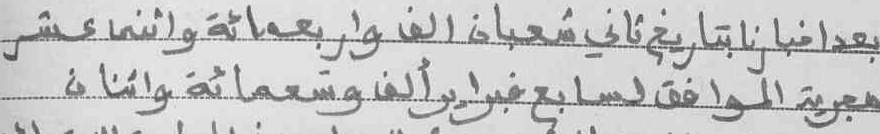 بعد اخبارنا بتاريخ ثاني شعبان الف واربعمائة واثنما عشر
هجرية الموافق لسابع فبراير ألف وتسعمائة واثنان